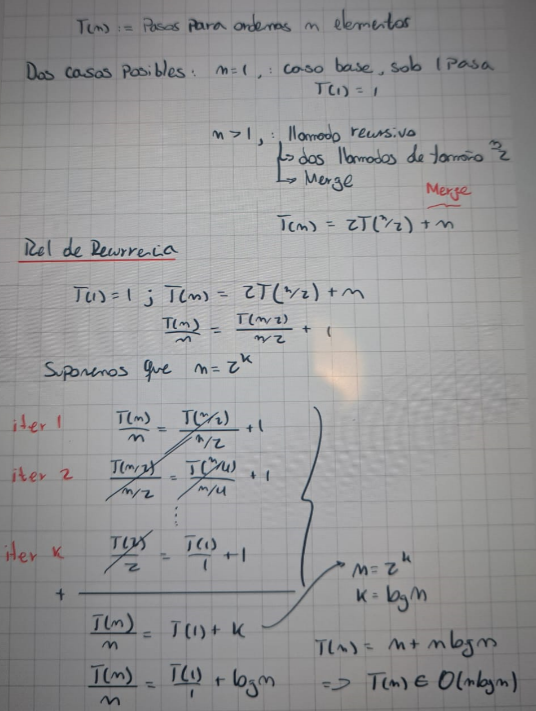 T(n) := Pasos para ordenas n elementos
Dos casos posibles: n=1, : caso base, solo 1 pasa
T(1) = 1
n>1, : llamado recursivo
↳ dos llamados de tamaño n/2
↳ Merge
Merge
T(n) = 2T(n/2) + n
Rel de Recurrencia
T(1) = 1 ; T(n) = 2T(n/2) + n
T(n)/n = T(n/2)/n/2 + 1
Suponenos que n = 2^k
iter 1 T(n)/n = T(n/2)/n/2 + 1
iter 2 T(n/2)/n/2 = T(n/4)/n/4 + 1
⋮
iter k T(2)/2 = T(1)/1 + 1
+
n = 2^k
k = log n
T(n)/n = T(1) + k
T(n) = n + n log n
T(n)/n = T(1)/1 + log n
=> T(n) ∈ O(n log n)